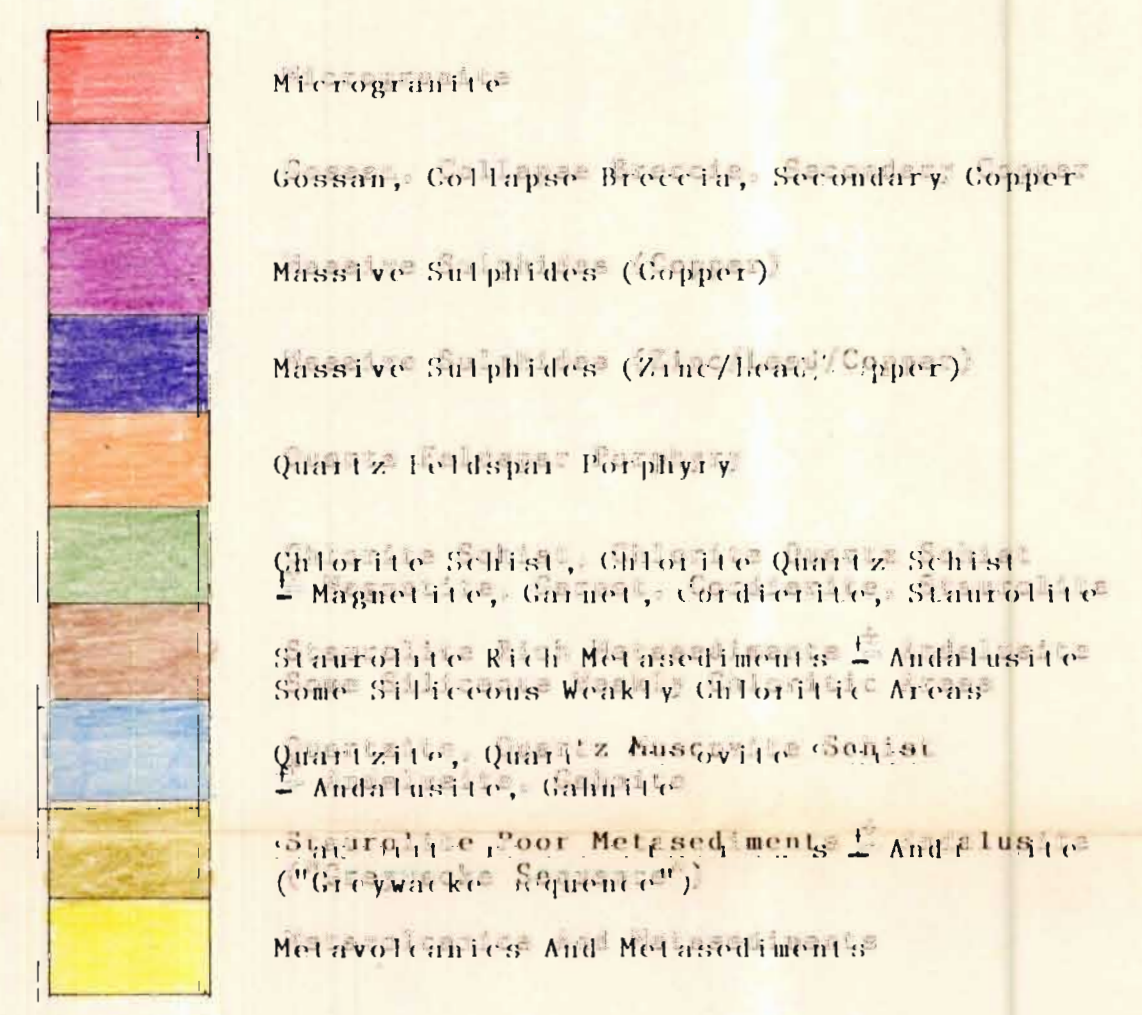 Microgranite
Gossan, Collapse Breccia, Secondary Copper
Massive Sulphides (Copper)
Massive Sulphides (Zinc/Lead/Copper)
Quartz Feldspar Porphyry
Chlorite Schist, Chlorite Quartz Schist
± Magnetite, Garnet, Cordierite, Staurolite
Staurolite Rich Metasediments ± Andalusite
Some Siliceous Weakly Chloritic Areas
Quartzite, Quartz Muscovite Schist
± Andalusite, Gahnite
Staurolite Poor Metasediments ± Andalusite
("Greywacke Sequence")
Metavolcanics And Metasediments